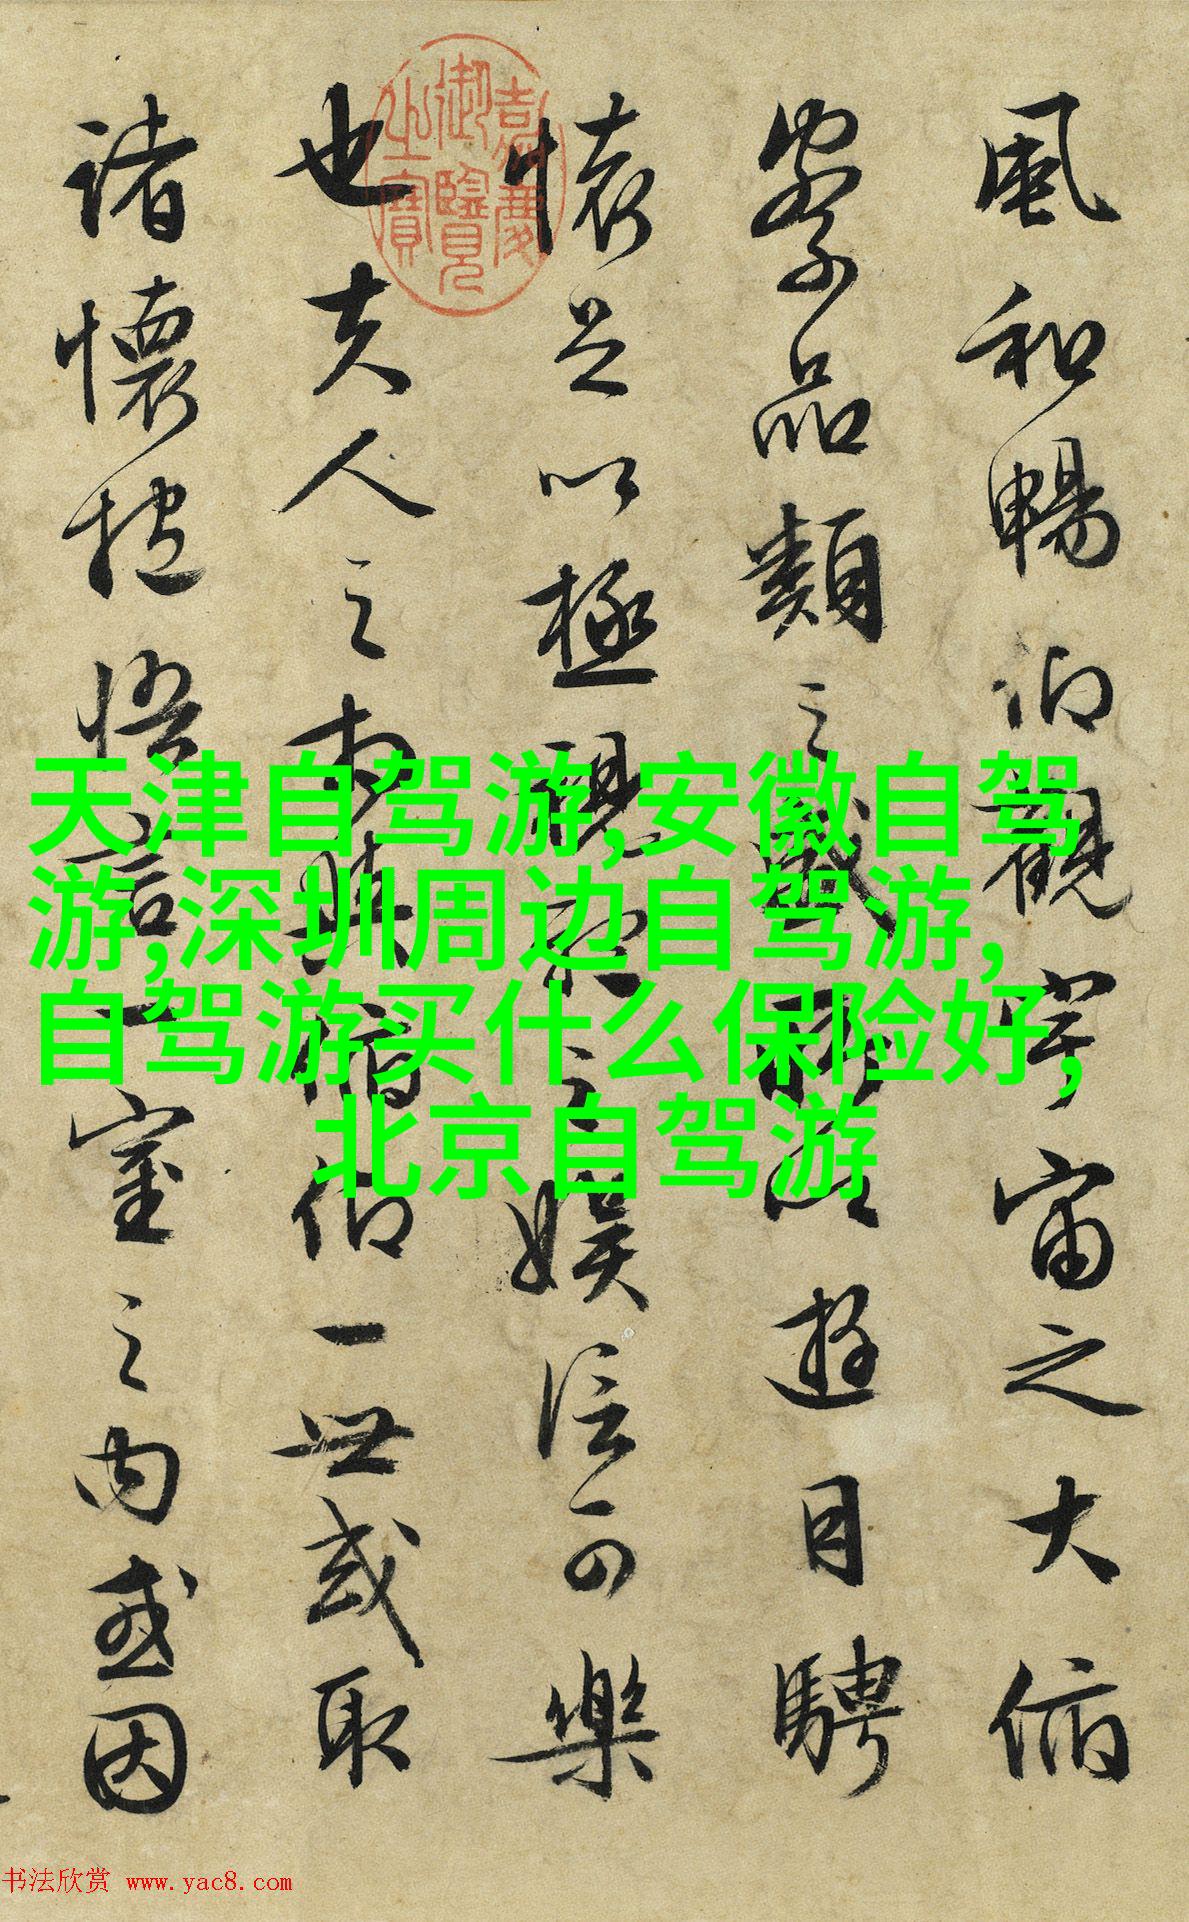 風和暢仰觀宇宙之大俯
察品類之盛所以遊目騁
懷足以極視聽之娛信可樂
也夫人之相與俯仰一世或取
諸懷抱悟言一室之內或因
嘉慶
御覽
之寶
天津自驾游,安徽自驾
游,深圳周边自驾游,
自驾游买什么保险好,
北京自驾游
书法欣赏 www.yac8.com